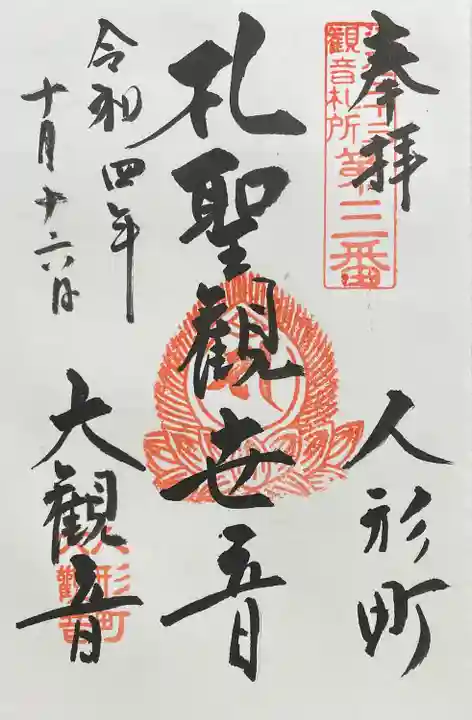 奉拝
觀音札所
第三番
人形町
札聖觀世音
大観音
人形町
大觀音
令和四年
十月十六日